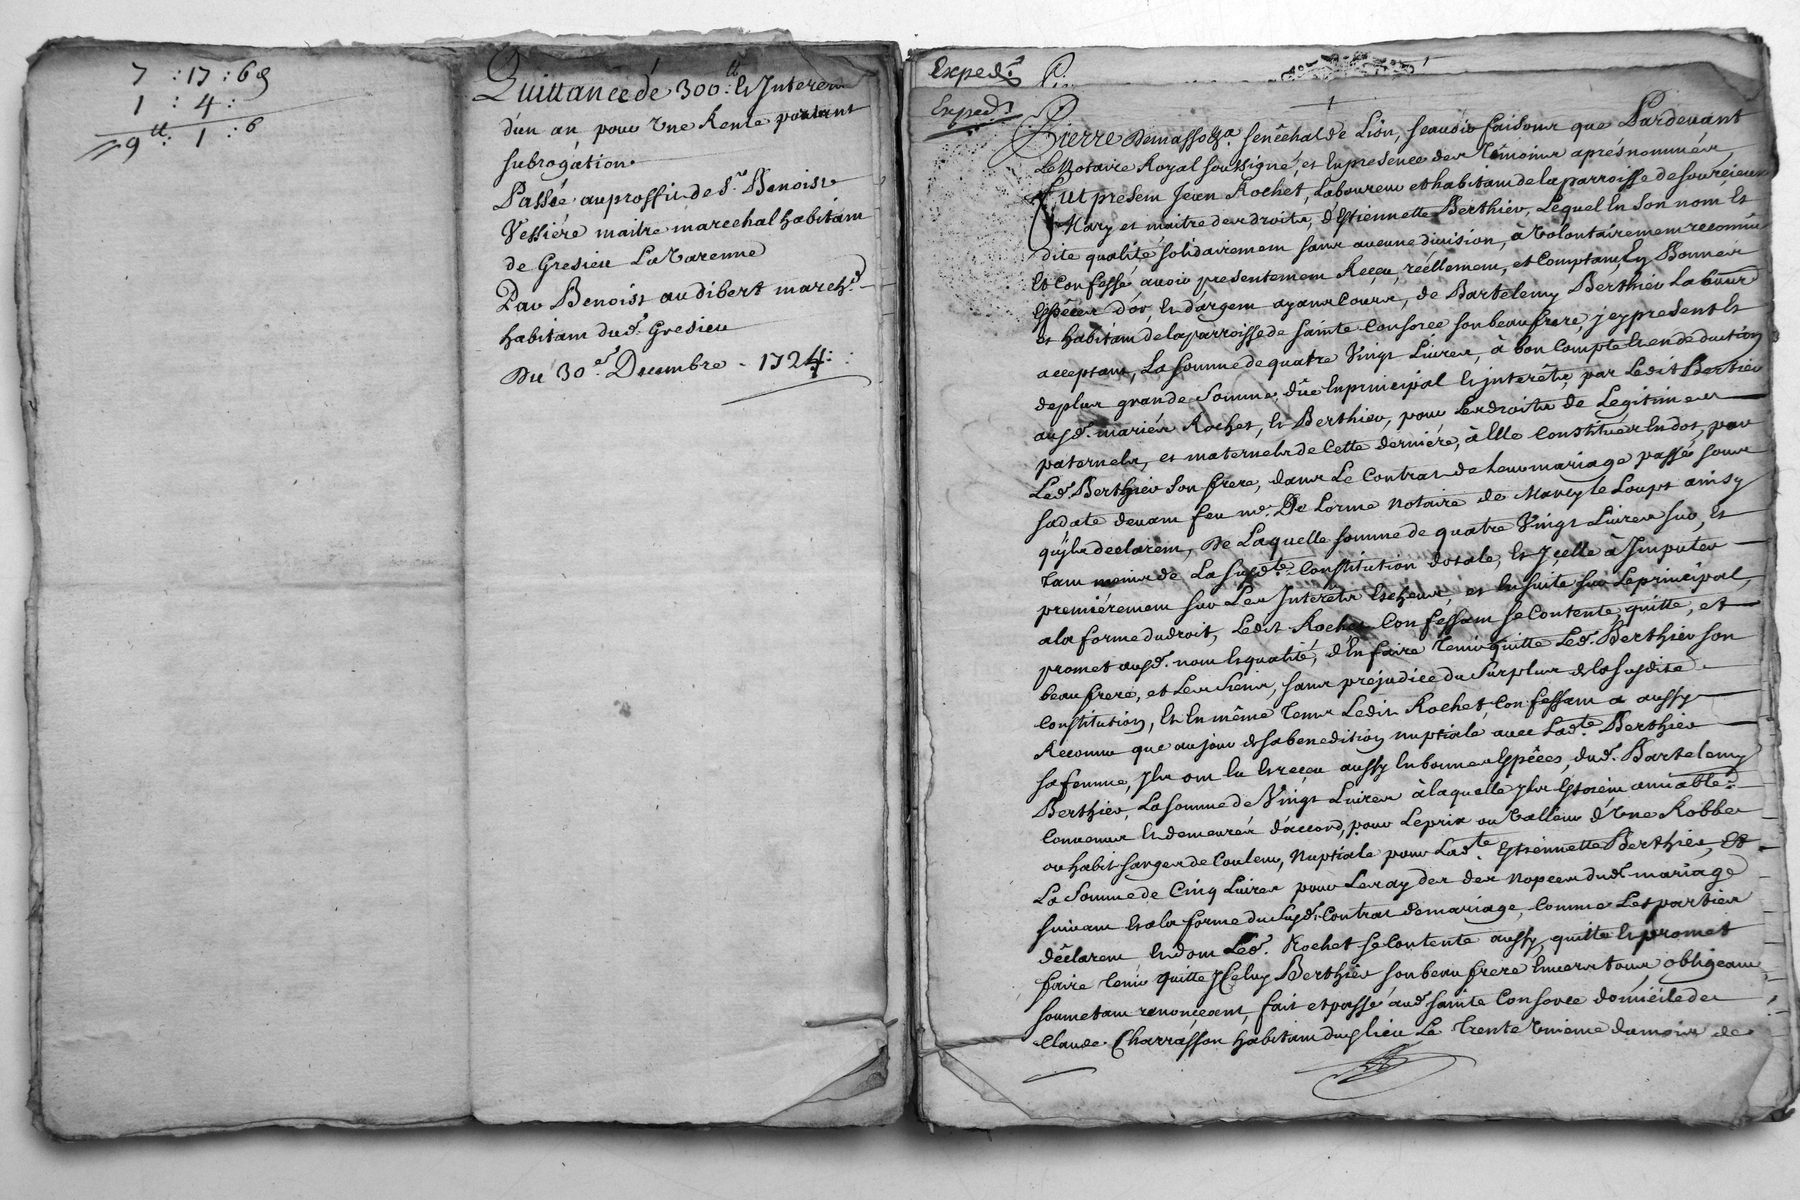 7 : 17 : 6 ₰
1 : 4 :
9 tt : 1 : 6
Quittance de 300 tt Et Interest
d'un an pour Une Rente portant
subrogation
Passée au proffit de Sr. Benoist
Vessiere maitre marechal habitant
de Gresieu La Varenne
Par Benoist audibert march.d
habitant dud. Gresieu
Du 30.e Decembre - 1724
Exped.
Exped.
Pierre Demasso &a. senêchal de Lion, scavoir faisons que Pardevant
Le Notaire Royal soussigné, et En presence des Témoins aprés nommés
Fut present Jean Rochet, Laboureur et habitant de la parroisse de sourcieux
Mary et maitre des droits, d'Estiennette Berthier, Lequel En son nom Et
dite qualité solidairement sans aucune division, à Volontairement reconnu
Et Confessé avoir presentement Reçeu, réellement, et Comptant, En Bonnes
Espêces d'or, Et d'argent ayans Cours, de Bartelemy Berthier Labour.
et habitant de la parroisse de Sainte Consorce son beau frere, jcy present Et
acceptant, La somme de quatre Vingt Livres, à bon Compte Et en deduction
de plus grande Somme, dûe En principal Et jnterêts, par Ledit Bertier
ausd. mariés Rochet, Et Berthier, pour Les droits de Legitimes
paternels, et maternels de Cette derniére, à Elle Constitués En dot, par
Led. Berthier son frere, dans Le Contrat de Leur mariage passé sous
sa date devant feu me. De Lorme Notaire de Marcy le Loups ainsy
qu'jls declarent, De Laquelle somme de quatre Vingt Livres sur, et
tant moins de La susd.te Constitution dotale, Et Jcelle à Jmputer
premiérement sur Les Jnterêts Echeus, et En suite sur Le principal,
a la forme du droit, Ledit Rochet Confessant se Contente, quitte, et
promet ausd. nom Et qualité, d'En faire Tenir quitte Led. Berthier son
beau frere, et Les siens, sans préjudice du Surplus de la susdite
Constitution, Et En même Tems Ledit Rochet Confessant a aussy
Reconnu que au jour de sa benedition nuptiale avec Lad.te Berthier
sa femme, Jls ont Eu Et reçeu aussy En bonnes Espêces, dud. Bartelemy
Berthier, La somme de Vingt Livres à laquelle jls Estoient amiable.t
Convenus Et demeurés d'accord, pour Le prix ou Valleur d'Une Robbe
ou habit sanger de Couleur, Nuptiale pour Lad.te Estiennette Berthier, Et
La Somme de Cinq Livres pour Les ay des des Nopces dud. mariage
suivant Et a la forme du susd. Contrat de mariage, Comme Les parties
déclarent, Et dont Led. Rochet se Contente aussy, quitte Et promet
faire Tenir quitte Jcéluy Berthier son beau frere Envers tous, obligeant
soumetant renonceant, fait et passé aud. Sainte Consorce domicile de
Claude Charrasson habitant dud. lieu Le Trente Unieme du mois de